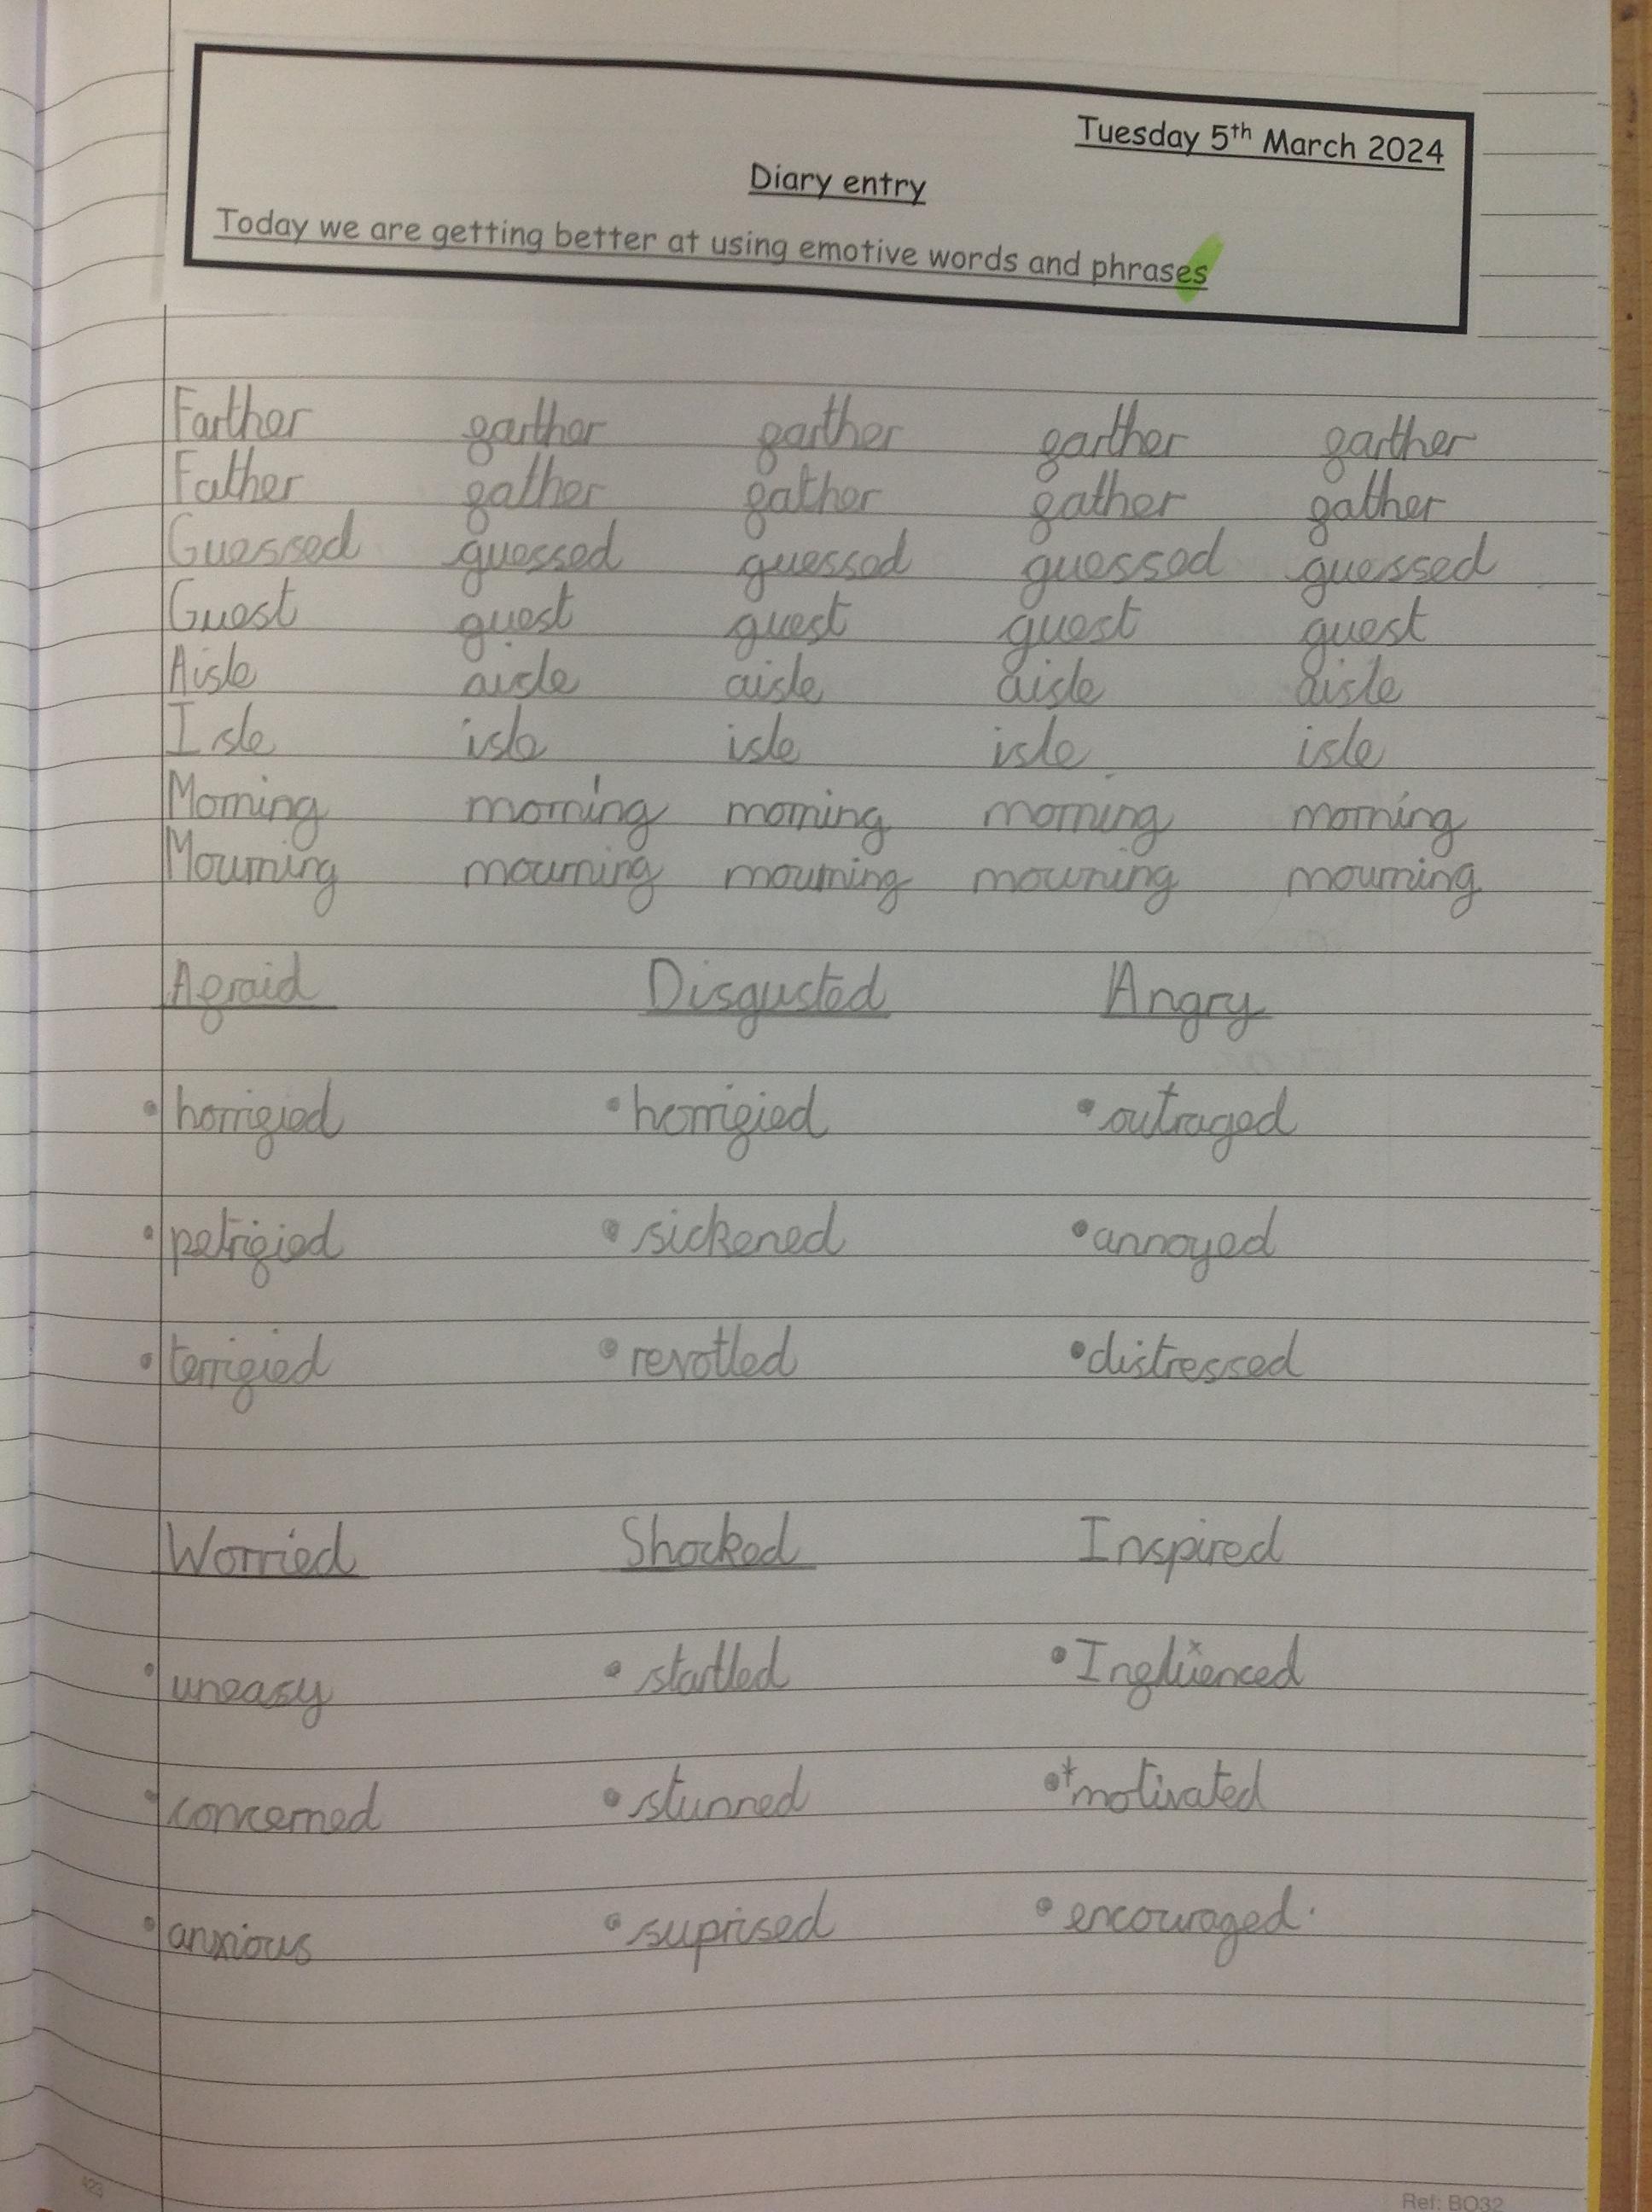 Tuesday 5th March 2024
Diary entry
Today we are getting better at using emotive words and phrases
Farther farther farther farther farther
Father father father father father
Guessed guessed guessed guessed guessed
Guest guest guest guest guest
Aisle aisle aisle aisle aisle
Isle isle isle isle isle
Morning morning morning morning morning
Mourning mourning mourning mourning mourning
Afraid Disgusted Angry
• horrified • horrified • outraged
• petrified • sickened • annoyed
• terrified • revotled • distressed
Worried Shocked Inspired
• uneasy • startled • Influenced
• concerned • stunned • motivated
• anxious • suprised • encouraged.
423 Ref: BO32